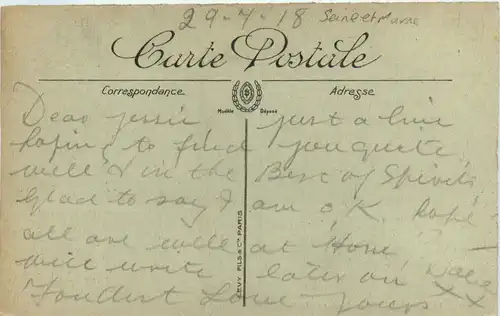 29-7-18 Seine et Marne
Carte Postale
Correspondance
Adresse
Modèle Déposé
Dear Jessie just a line
hoping to find you quite
well & in the Best of Spirits
Glad to say I am O.K. hope
all are well at Home
will write later on
Fondest Love yours
xx
LEVY FILS & Cie PARIS